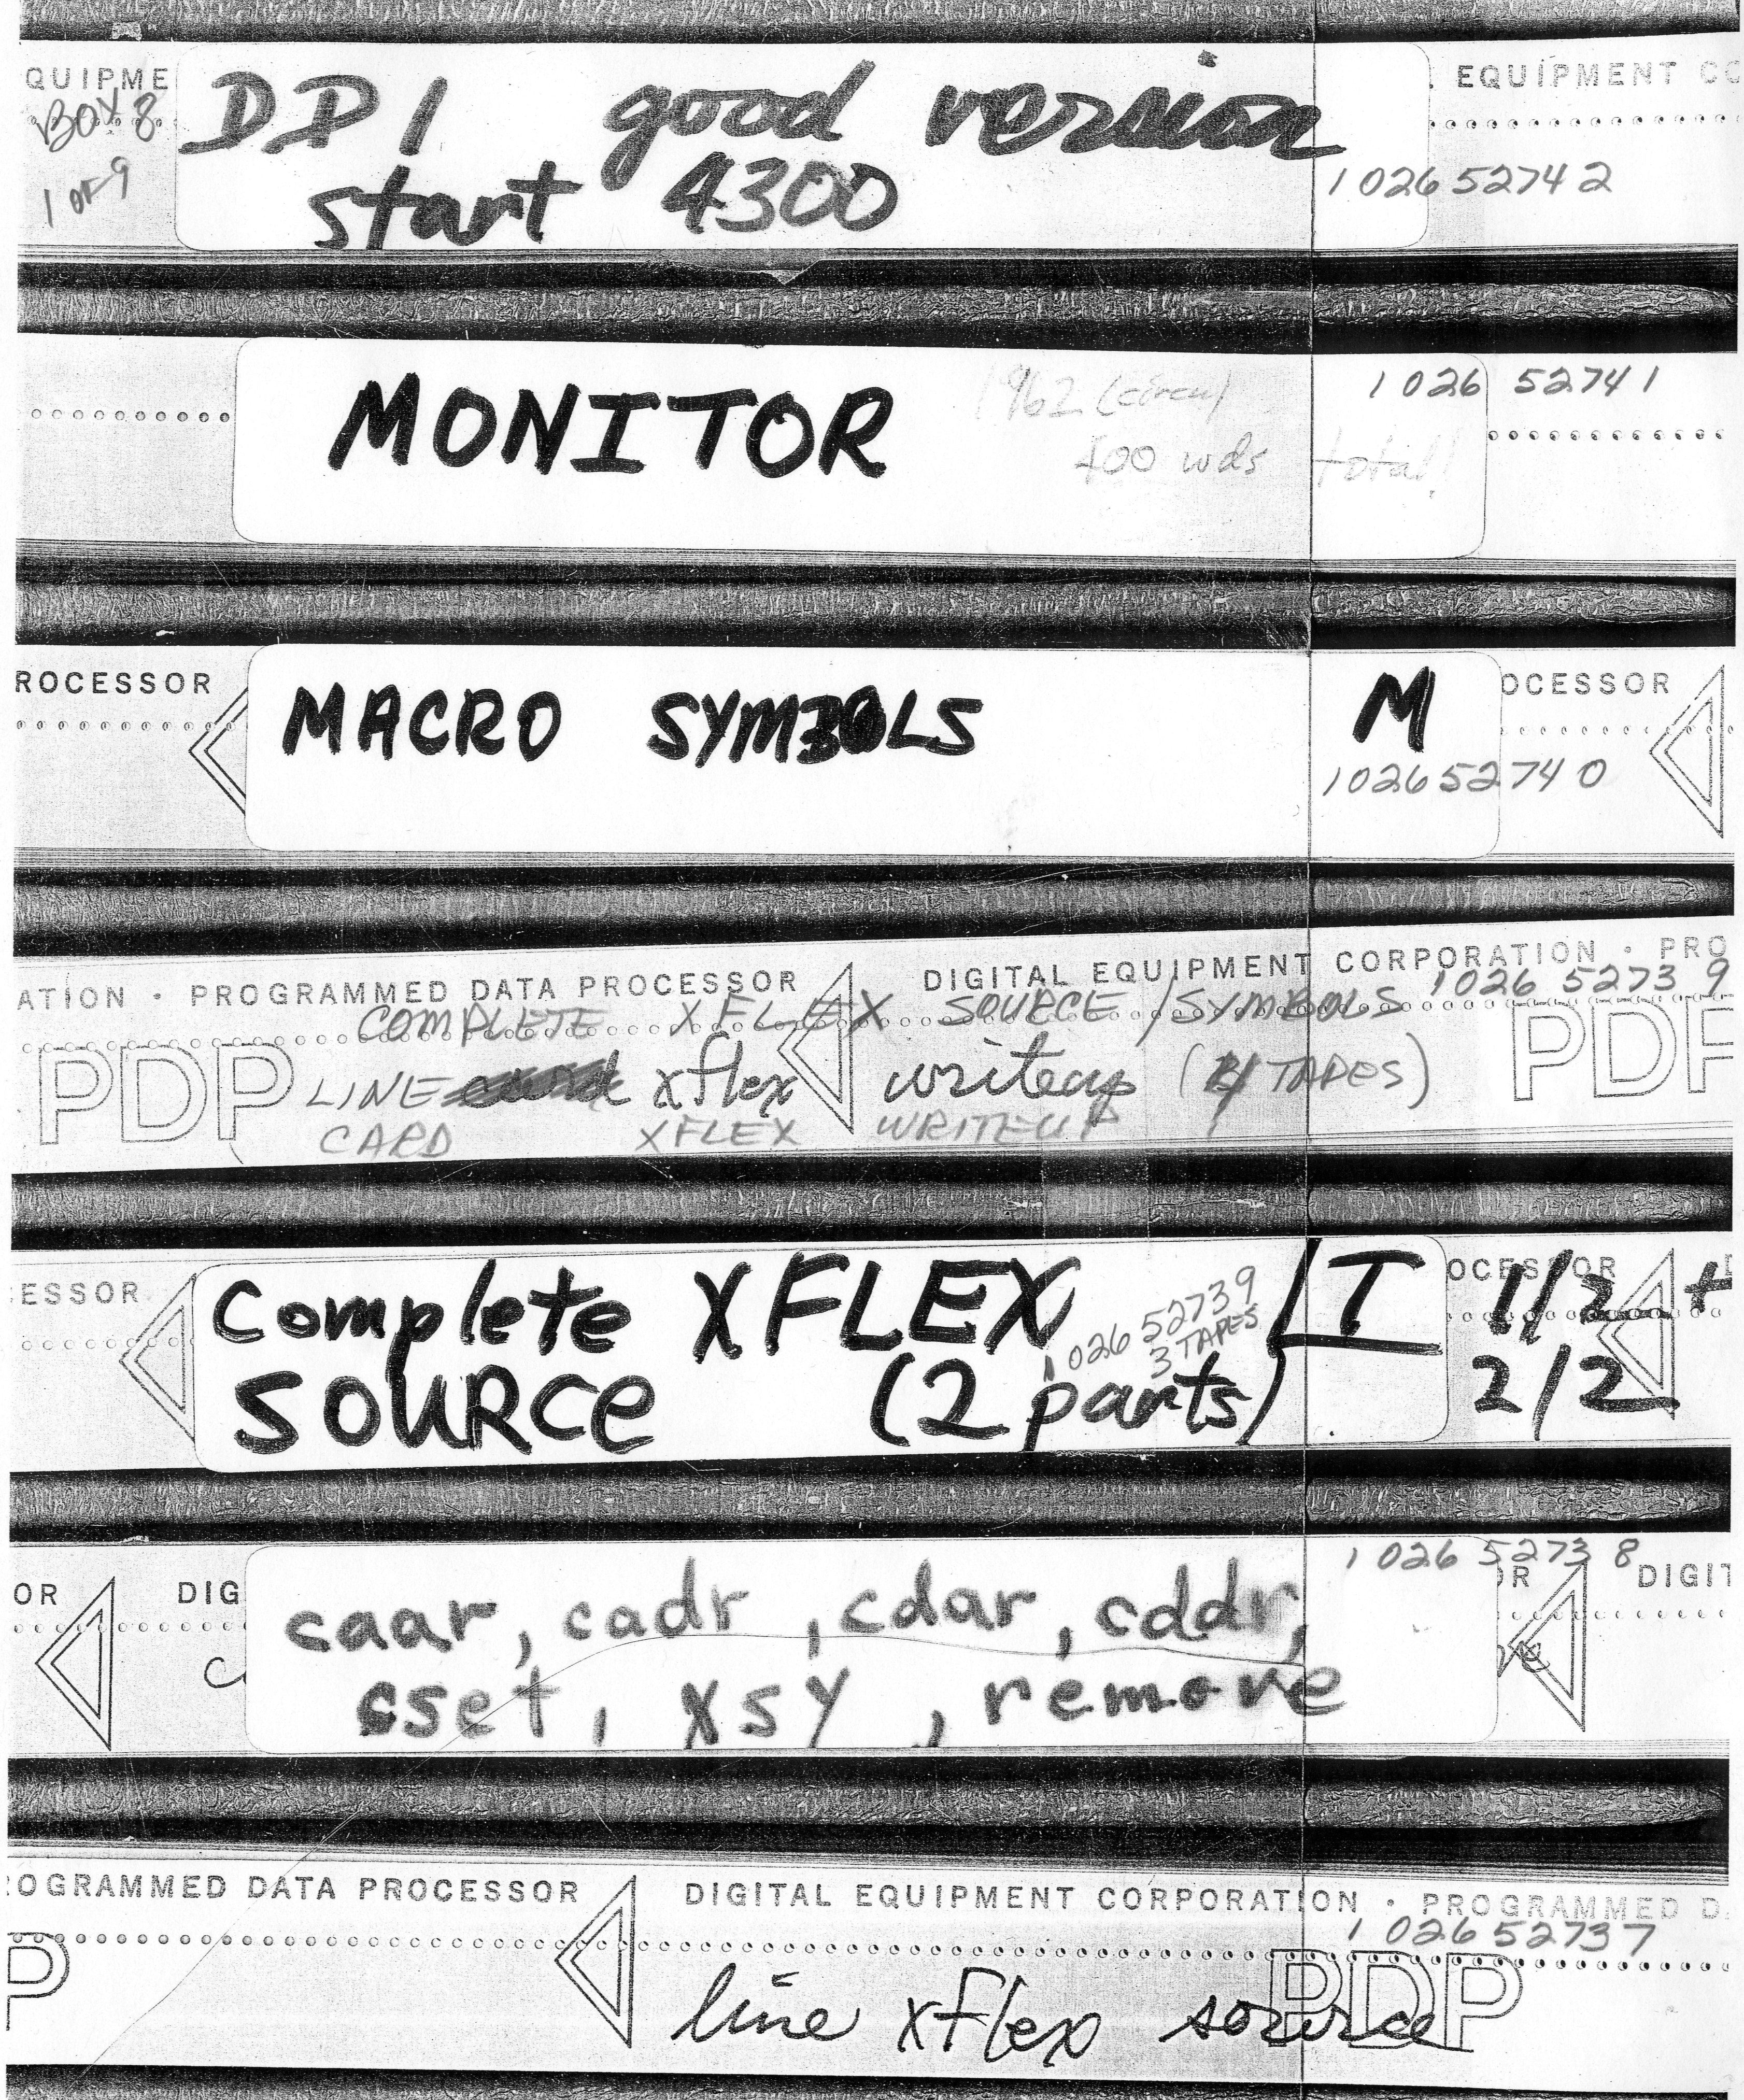 QUIPME
BOX 8
1 OF 9
DDI good version
start 4300
EQUIPMENT CO
102652742
MONITOR
1962 (circa)
400 wds total!
102652741
ROCESSOR
MACRO SYMBOLS
M
OCESSOR
102652740
ATION · PROGRAMMED DATA PROCESSOR
DIGITAL EQUIPMENT CORPORATION · PRO
102652739
COMPLETE XFLEX SOURCE / SYMBOLS
PDP
LINE xflex writeup ( TAPES)
PDP
CARD XFLEX WRITEUP
ESSOR
Complete XFLEX
SOURCE (2 parts)
102652739
3 TAPES
I
OCESSOR
1/2 +
2/2
102652738
OR
DIG
caar, cadr, cdar, cddr,
cset, xsy, remove
R
DIGIT
OGRAMMED DATA PROCESSOR
DIGITAL EQUIPMENT CORPORATION · PROGRAMMED D
102652737
P
line xflex source
PDP